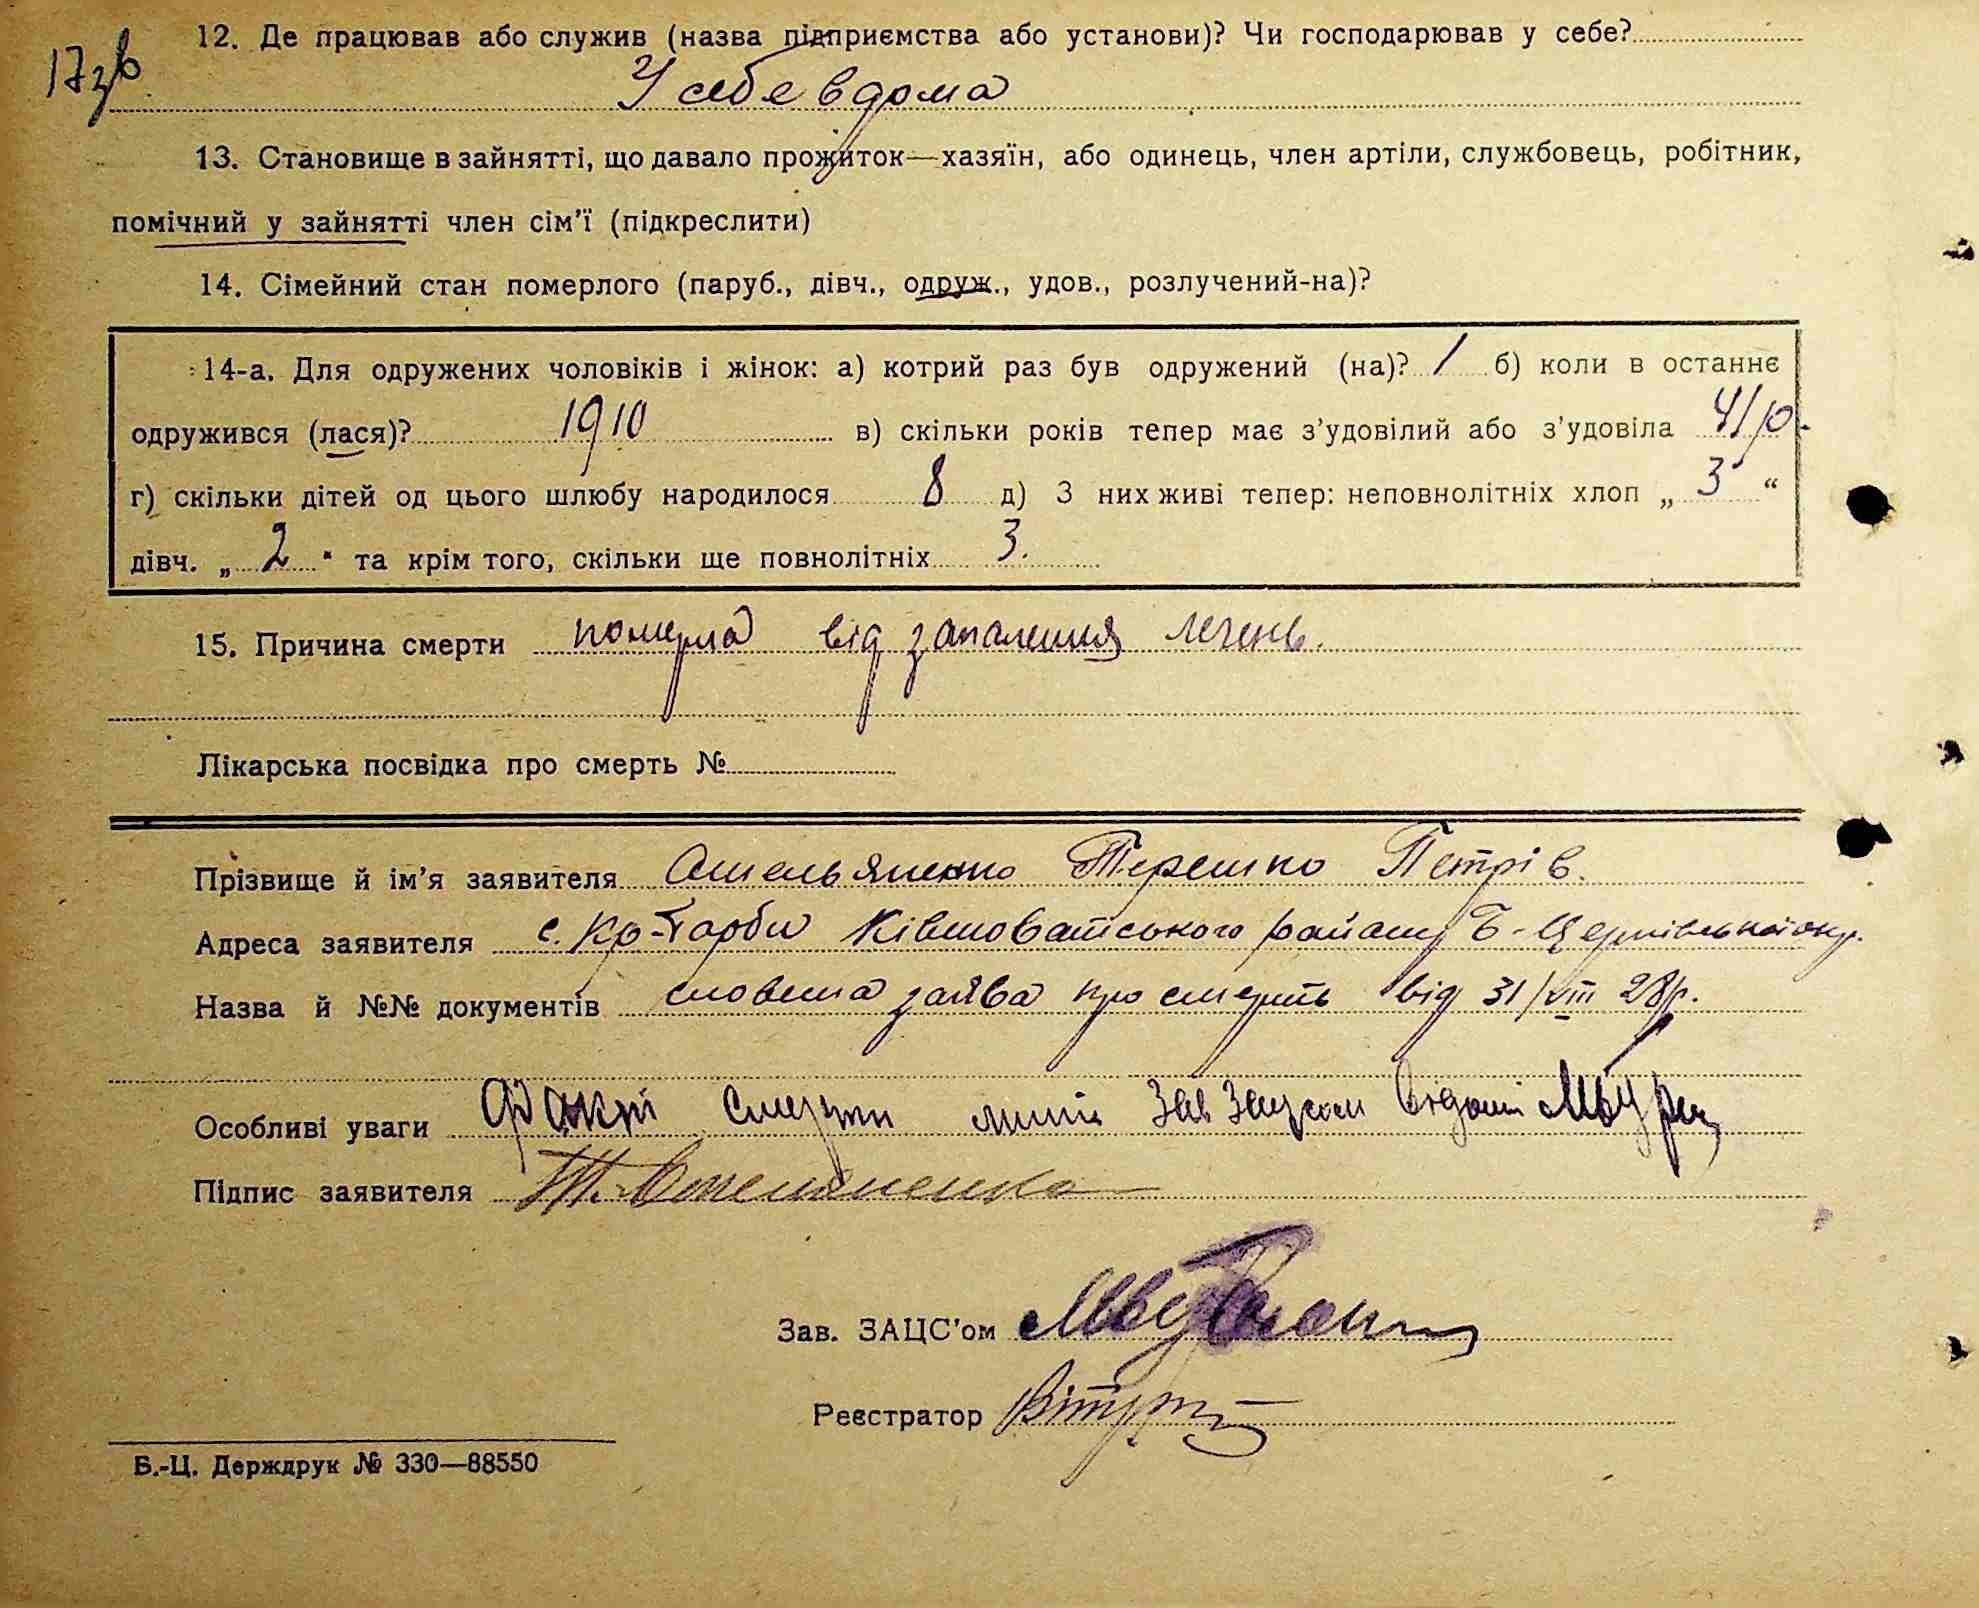 17 зв
12. Де працював або служив (назва підприємства або установи)? Чи господарював у себе?
У себе вдома
13. Становище в зайнятті, що давало прожиток—хазяїн, або одинець, член артіли, службовець, робітник,
помічний у зайнятті член сім'ї (підкреслити)
14. Сімейний стан померлого (паруб., дівч., одруж., удов., розлучений-на)?
14-а. Для одружених чоловіків і жінок: а) котрий раз був одружений (на)? 1 б) коли в останнє
одружився (лася)? 1910 в) скільки років тепер має з'удовілий або з'удовіла 41 р.
г) скільки дітей од цього шлюбу народилося 8 д) З них живі тепер: неповнолітніх хлоп „ 3 “
дівч. „ 2 “ та крім того, скільки ще повнолітніх 3.
15. Причина смерти померла від запалення легень.
Лікарська посвідка про смерть №
Прізвище й ім'я заявителя Омельяненко Терешко Петрів.
Адреса заявителя с. Кр-Гарби Ківшоватського району Б-Церківської окр.
Назва й №№ документів словесна заява про смерть від 31/VIII 28р.
Особливі уваги Факт смерти Зав Загсом
Підпис заявителя Т. Омельяненко
Зав. ЗАЦС'ом
Реєстратор
Б.-Ц. Держдрук № 330—88550